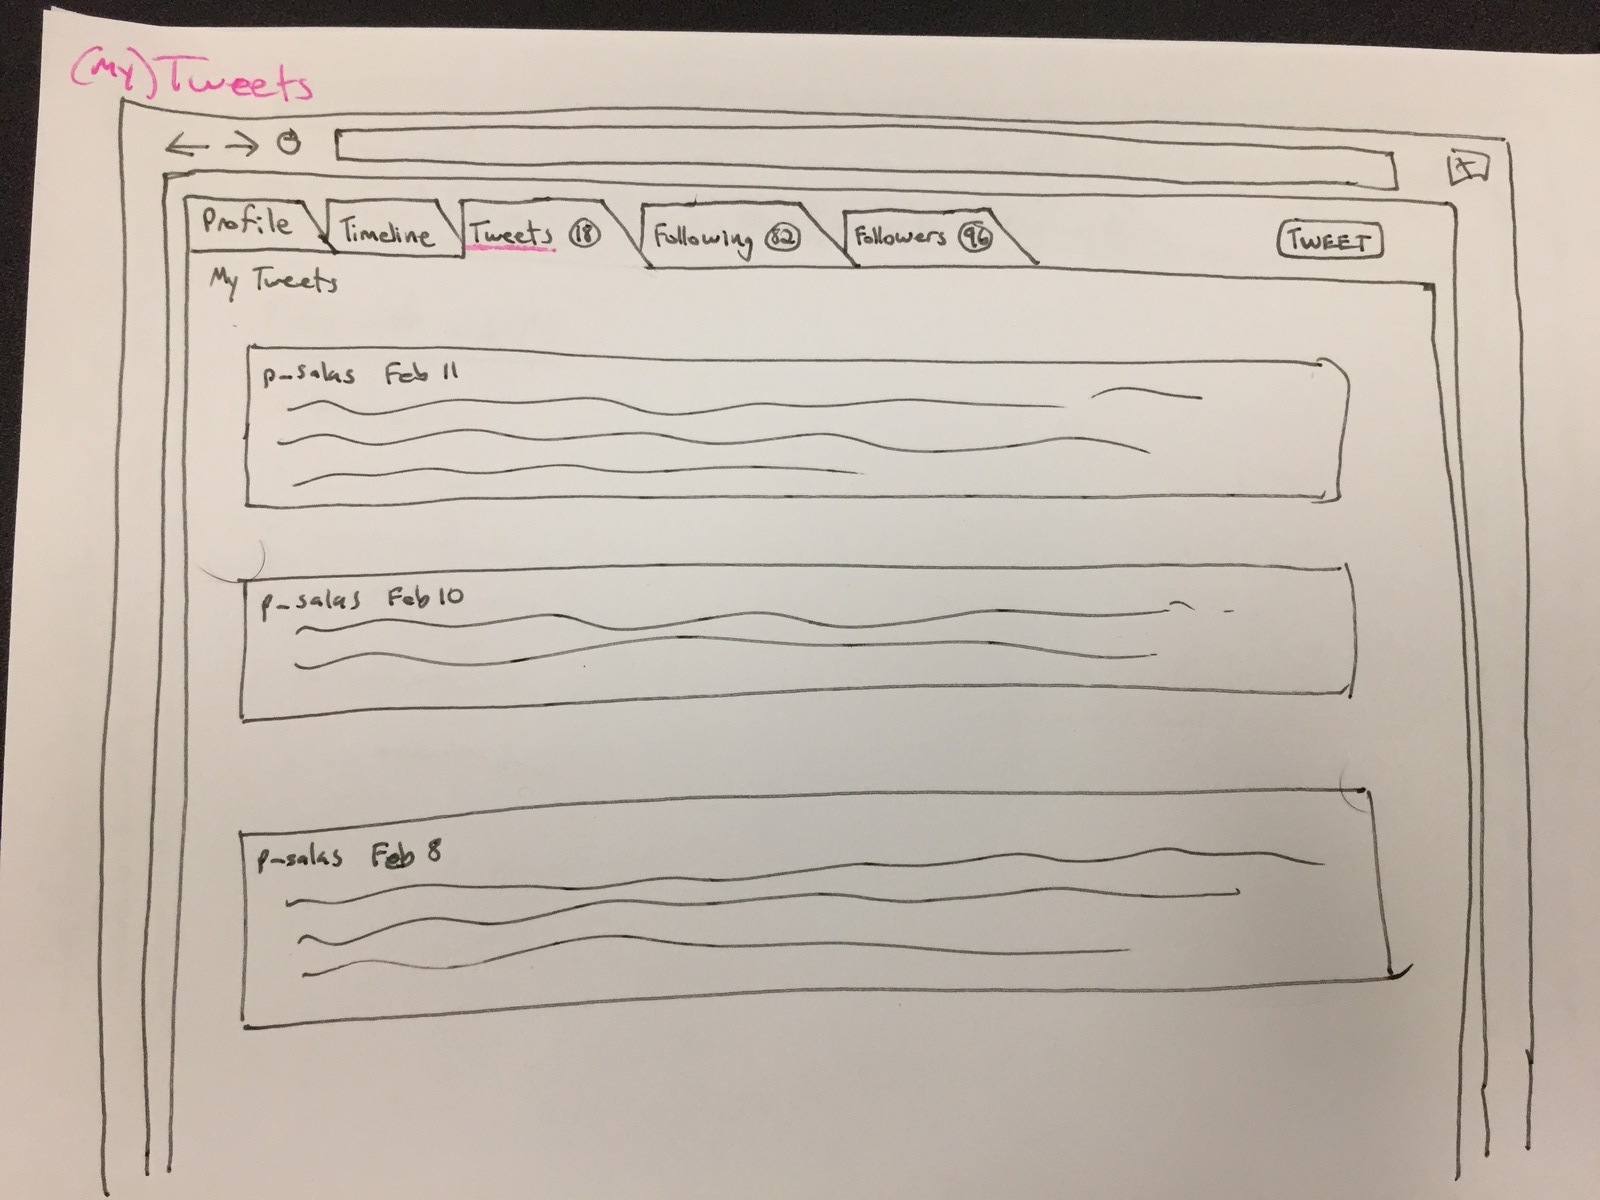 (My) Tweets
Profile Timeline Tweets 18 Following 82 Followers 96 TWEET
My Tweets
p-salas Feb 11
p-salas Feb 10
p-salas Feb 8